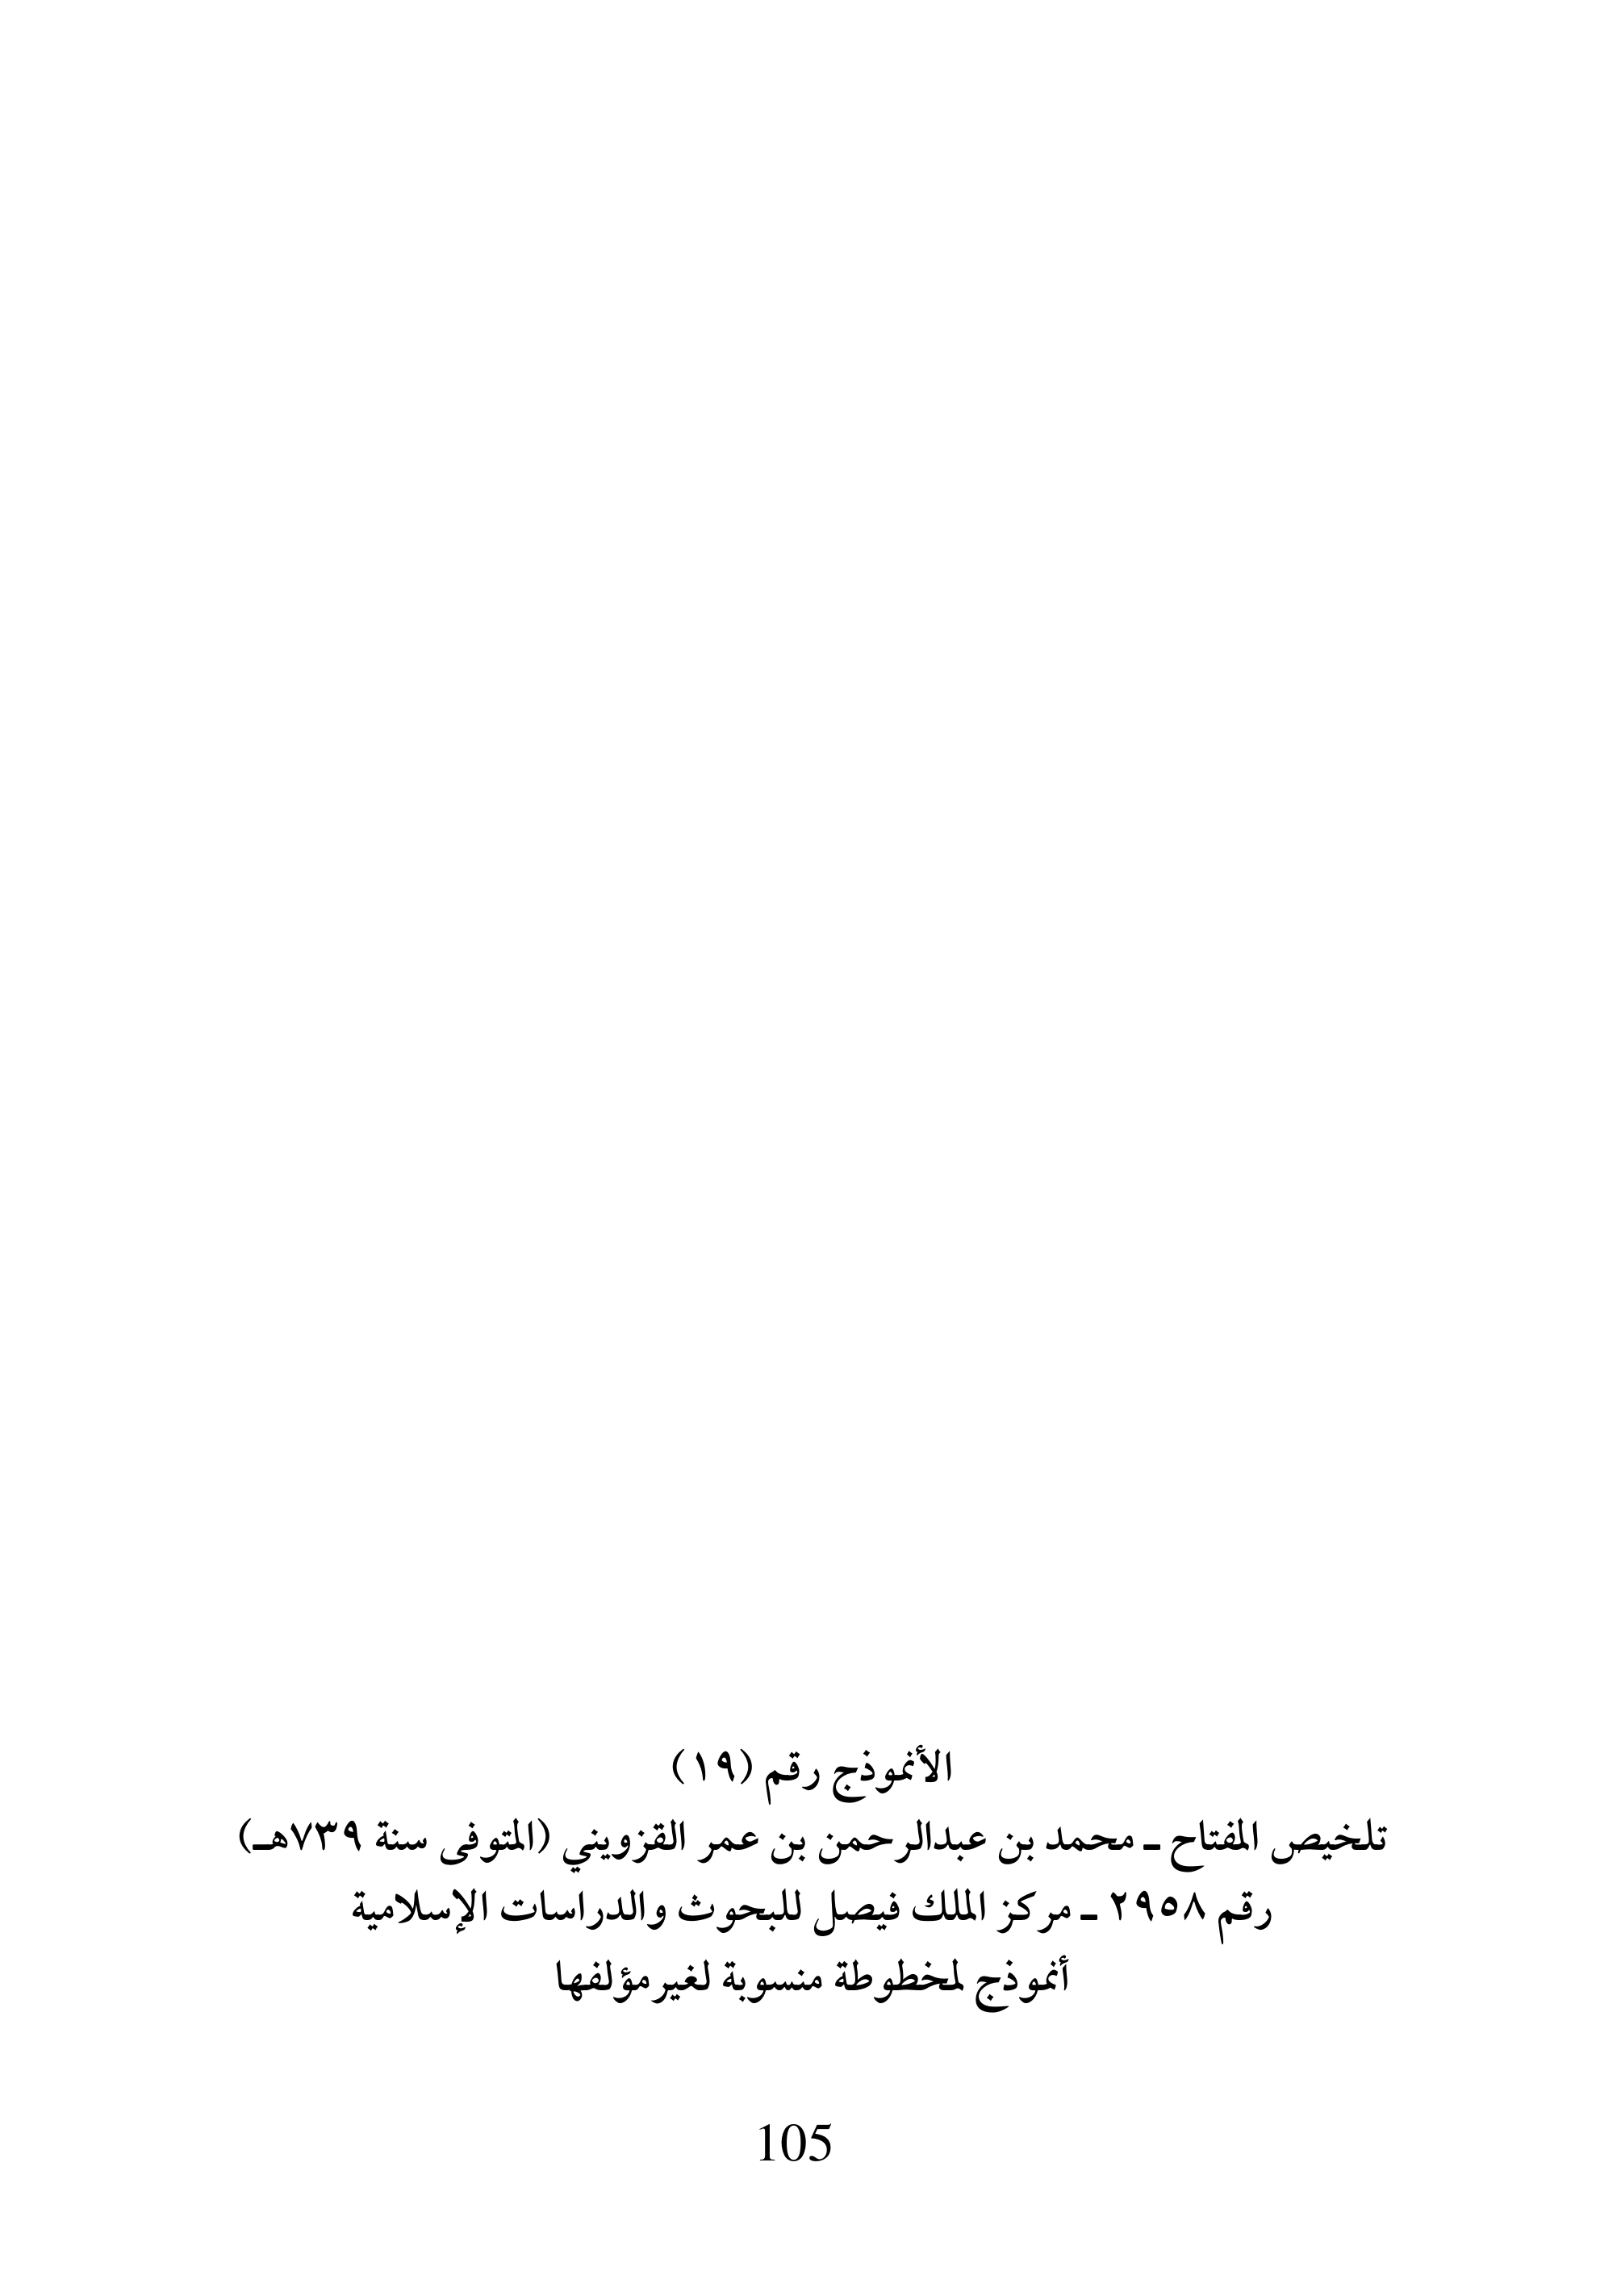 الأنموذج رقم (١٩)
تلخيص المفتاح ـ محمد بن عبدالرحمن بن عمر القزويني (المتوفى سنة ٧٣٩هـ)
رقم ٢٩٥٨ ـ مركز الملك فيصل للبحوث والدراسات الإسلامية
أنموذج لمخطوطة منسوبة لغير مؤلفها
105